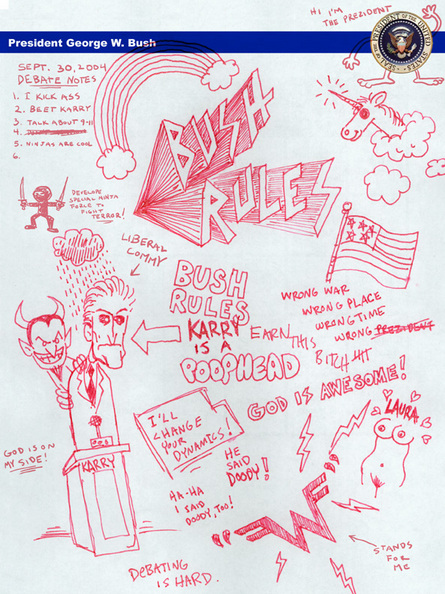 HI I'M
THE PREZIDENT
President George W. Bush
SEAL OF THE PRESIDENT OF THE UNITED STATES
SEPT. 30, 2004
DEBATE NOTES
1. I KICK ASS
2. BEET KARRY
3. TALK ABOUT 9-11
4.
5. NINJAS ARE COOL
6.
BUSH
RULES
DEVELOPE
SPECIAL NINJA
FORCE TO
FIGHT
TERROR!
LIBERAL
COMMY
BUSH
RULES
KARRY
IS A
POOPHEAD
WRONG WAR
WRONG PLACE
WRONG TIME
WRONG PREZIDENT
EARN THIS
BITCH HIT
GOD IS AWESOME!
LAURA
I'LL
CHANGE
YOUR
DYNAMICS!
HE
SAID
DOODY!
HA-HA
I SAID
DOODY, TOO!
GOD IS ON
MY SIDE!
KARRY
"W"
STANDS
FOR
ME
DEBATING
IS HARD.